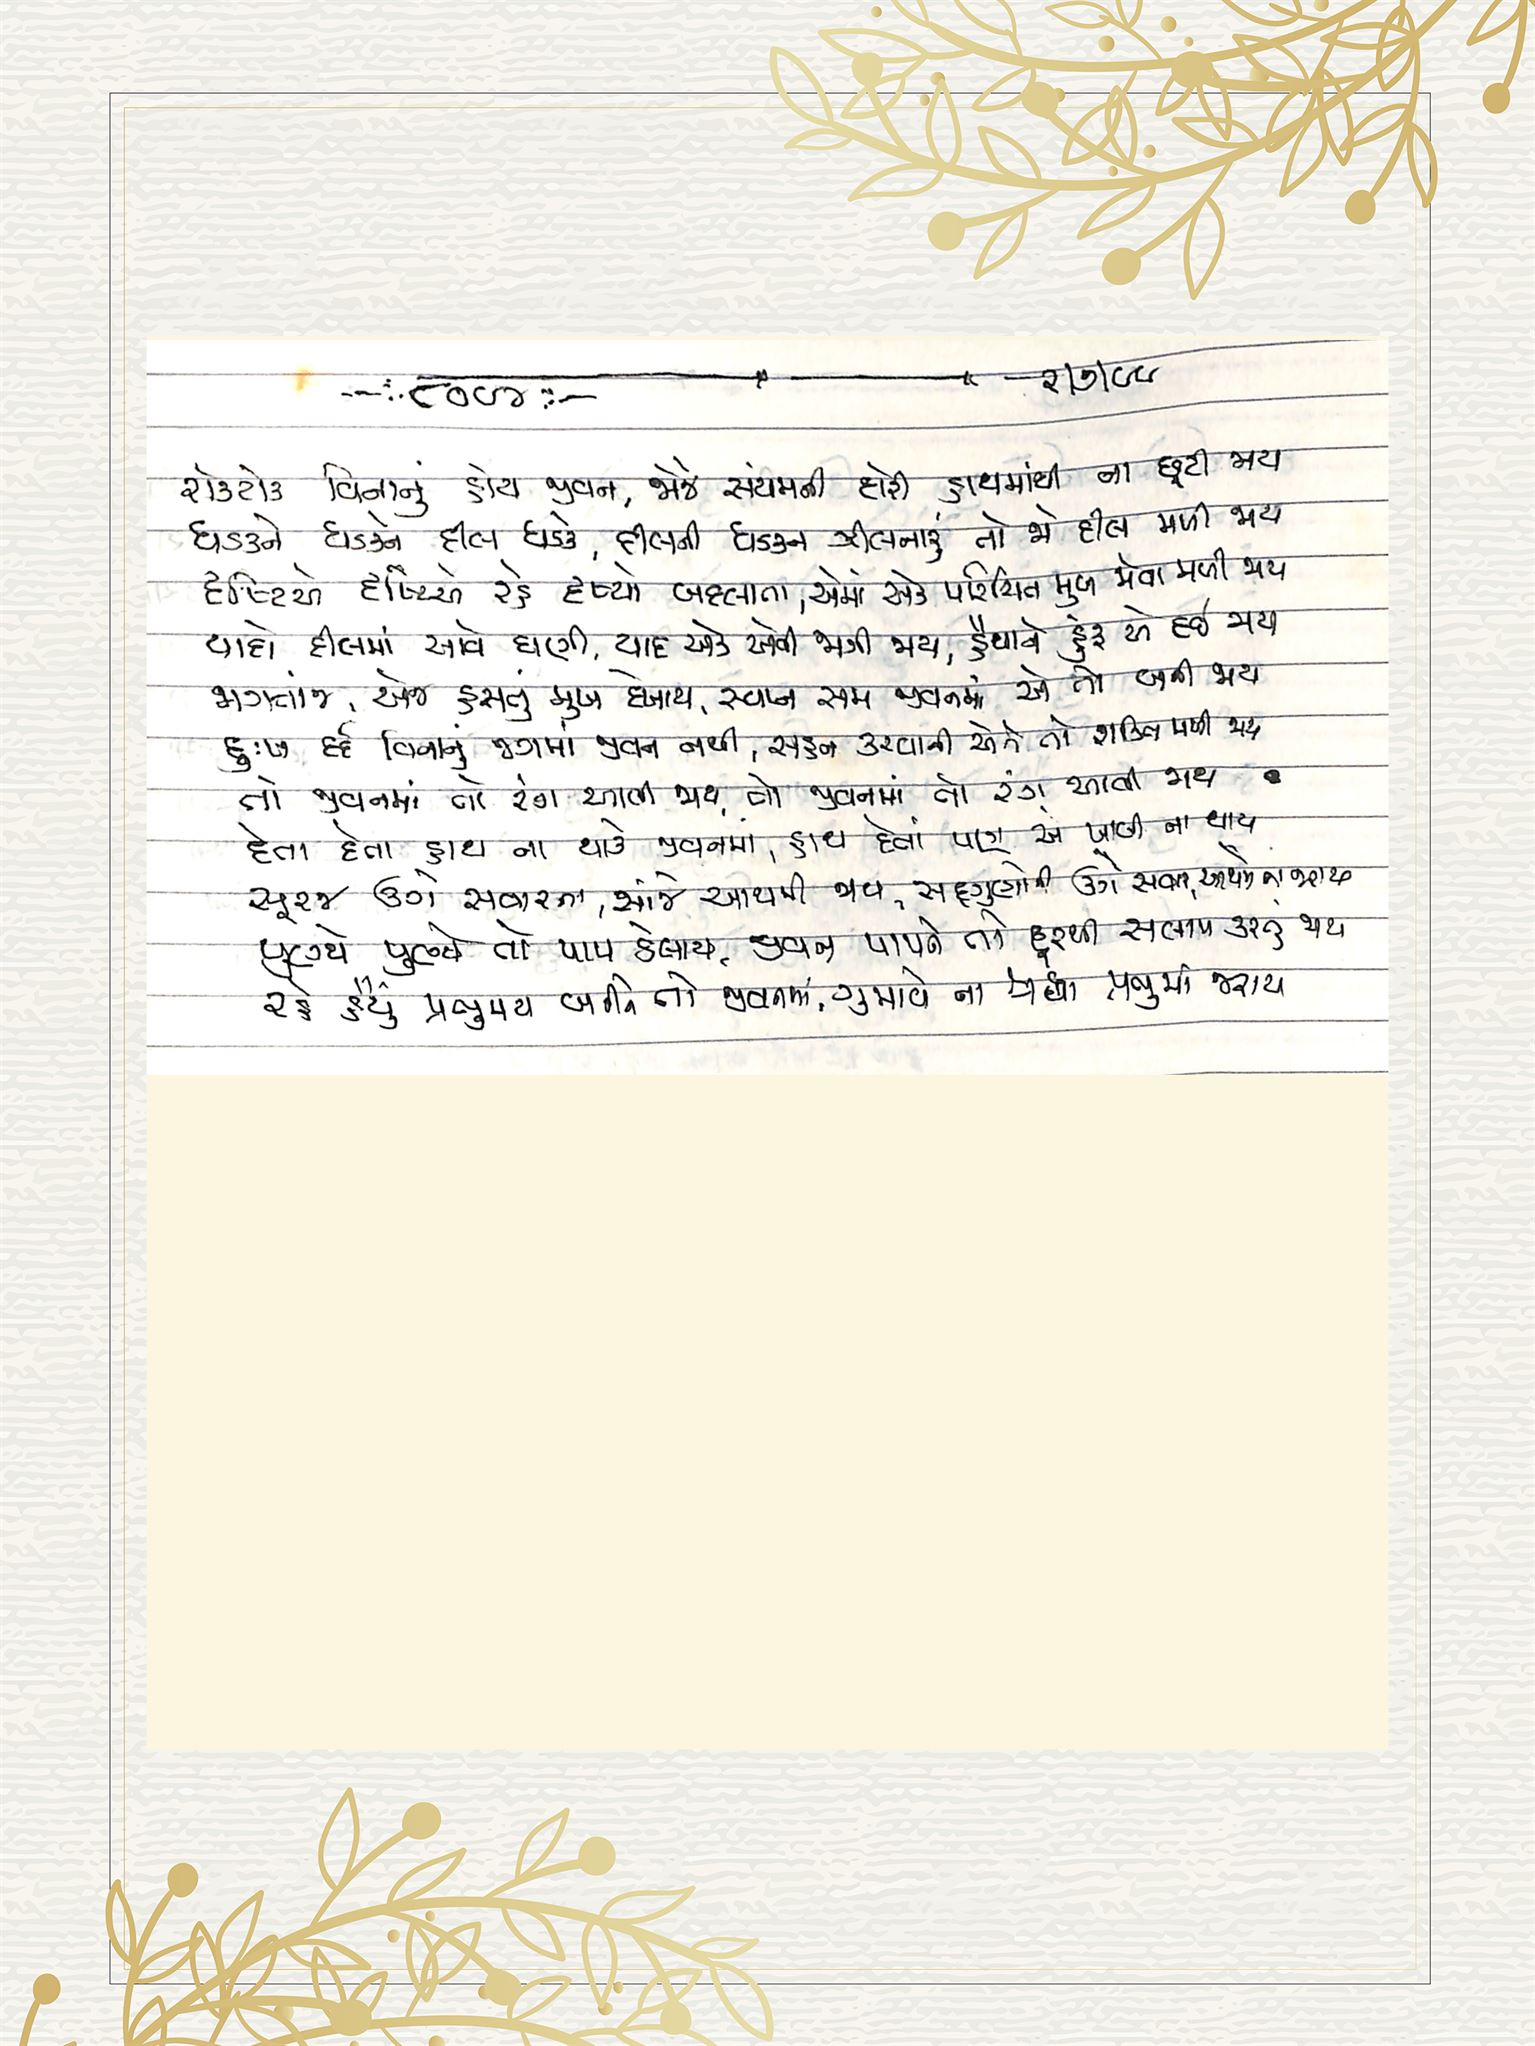 --:. ૮૦૯૪ :--
૨/૭/૯૯
રોકટોક વિનાનું હોય જીવન, જોજે સંયમની દોરી હાથમાંથી ના છૂટી જાય
ધડકને ધડકને દીલ ધડકે, દીલની ધડકન ઝીલનારૂં તો જો દીલ મળી જાય
દૃષ્ટિએ દૃષ્ટિએ રહે દૃષ્યો બદલાતા, એમાં એક પરિચિત મુખ જોવા મળી જાય
યાદો દીલમાં આવે ઘણી, યાદ એક એવી જાગી જાય, હૈયાને હું રૂ એ દઈ જાય
જાગતાંજ, એજ હસતું મુખ દેખાય, સ્વપ્ન સમ જીવનમાં એ તો બની જાય
દુઃખ દર્દ વિનાનું જગમાં જીવન નથી, સહન કરવાની એને તો શક્તિ મળી જાય
તો જીવનમાં તો રંગ આવી જાય, તો જીવનમાં તો રંગ આવી જાય
દેતા દેતા હાથ ના થાકે જીવનમાં, હાથ દેતાં પણ એ ખાલી ના થાય
સૂરજ ઉગે સવારના, સાંજે આથમી જાય, સદ્ગુણોની ઉગે સવાર, આથમે ના જરાય
પુણ્યે પુણ્યે તો પાપ ઠેલાય, જીવન પાપને તો દૂરથી સલામ કરતું જાય
રહે હૈયું પ્રભુમય બનીને તો જીવનમાં, ગુમાવે ના શ્રદ્ધા પ્રભુમાં જરાય